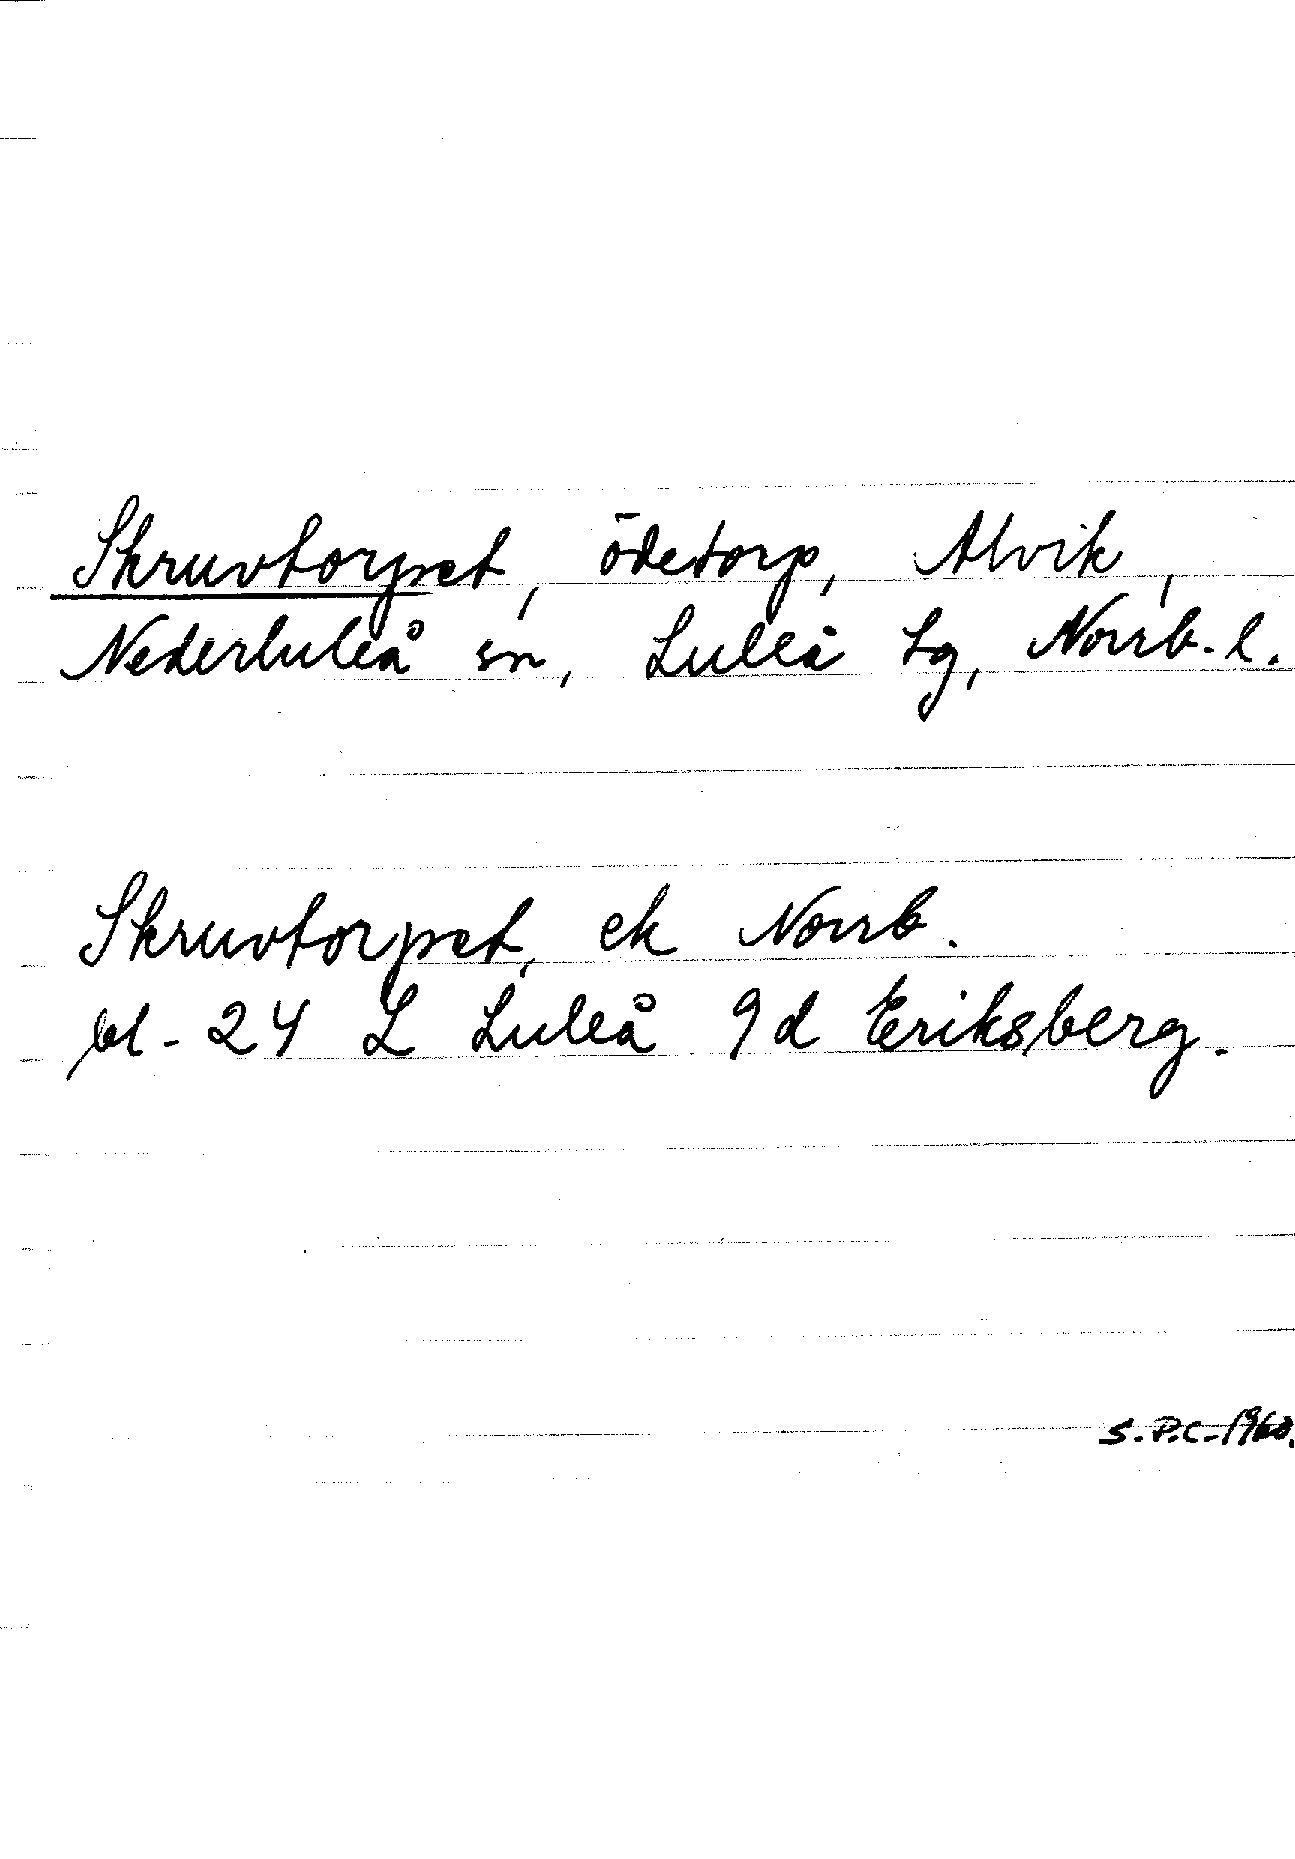 Skruvtorpet, ödetorp, Alvik,
Nederluleå sn, Luleå tg, Norrb. l.
Skruvtorpet, ek Norrb.
bl. 24 L Luleå 9d Eriksberg.
S.P.C. 1960.